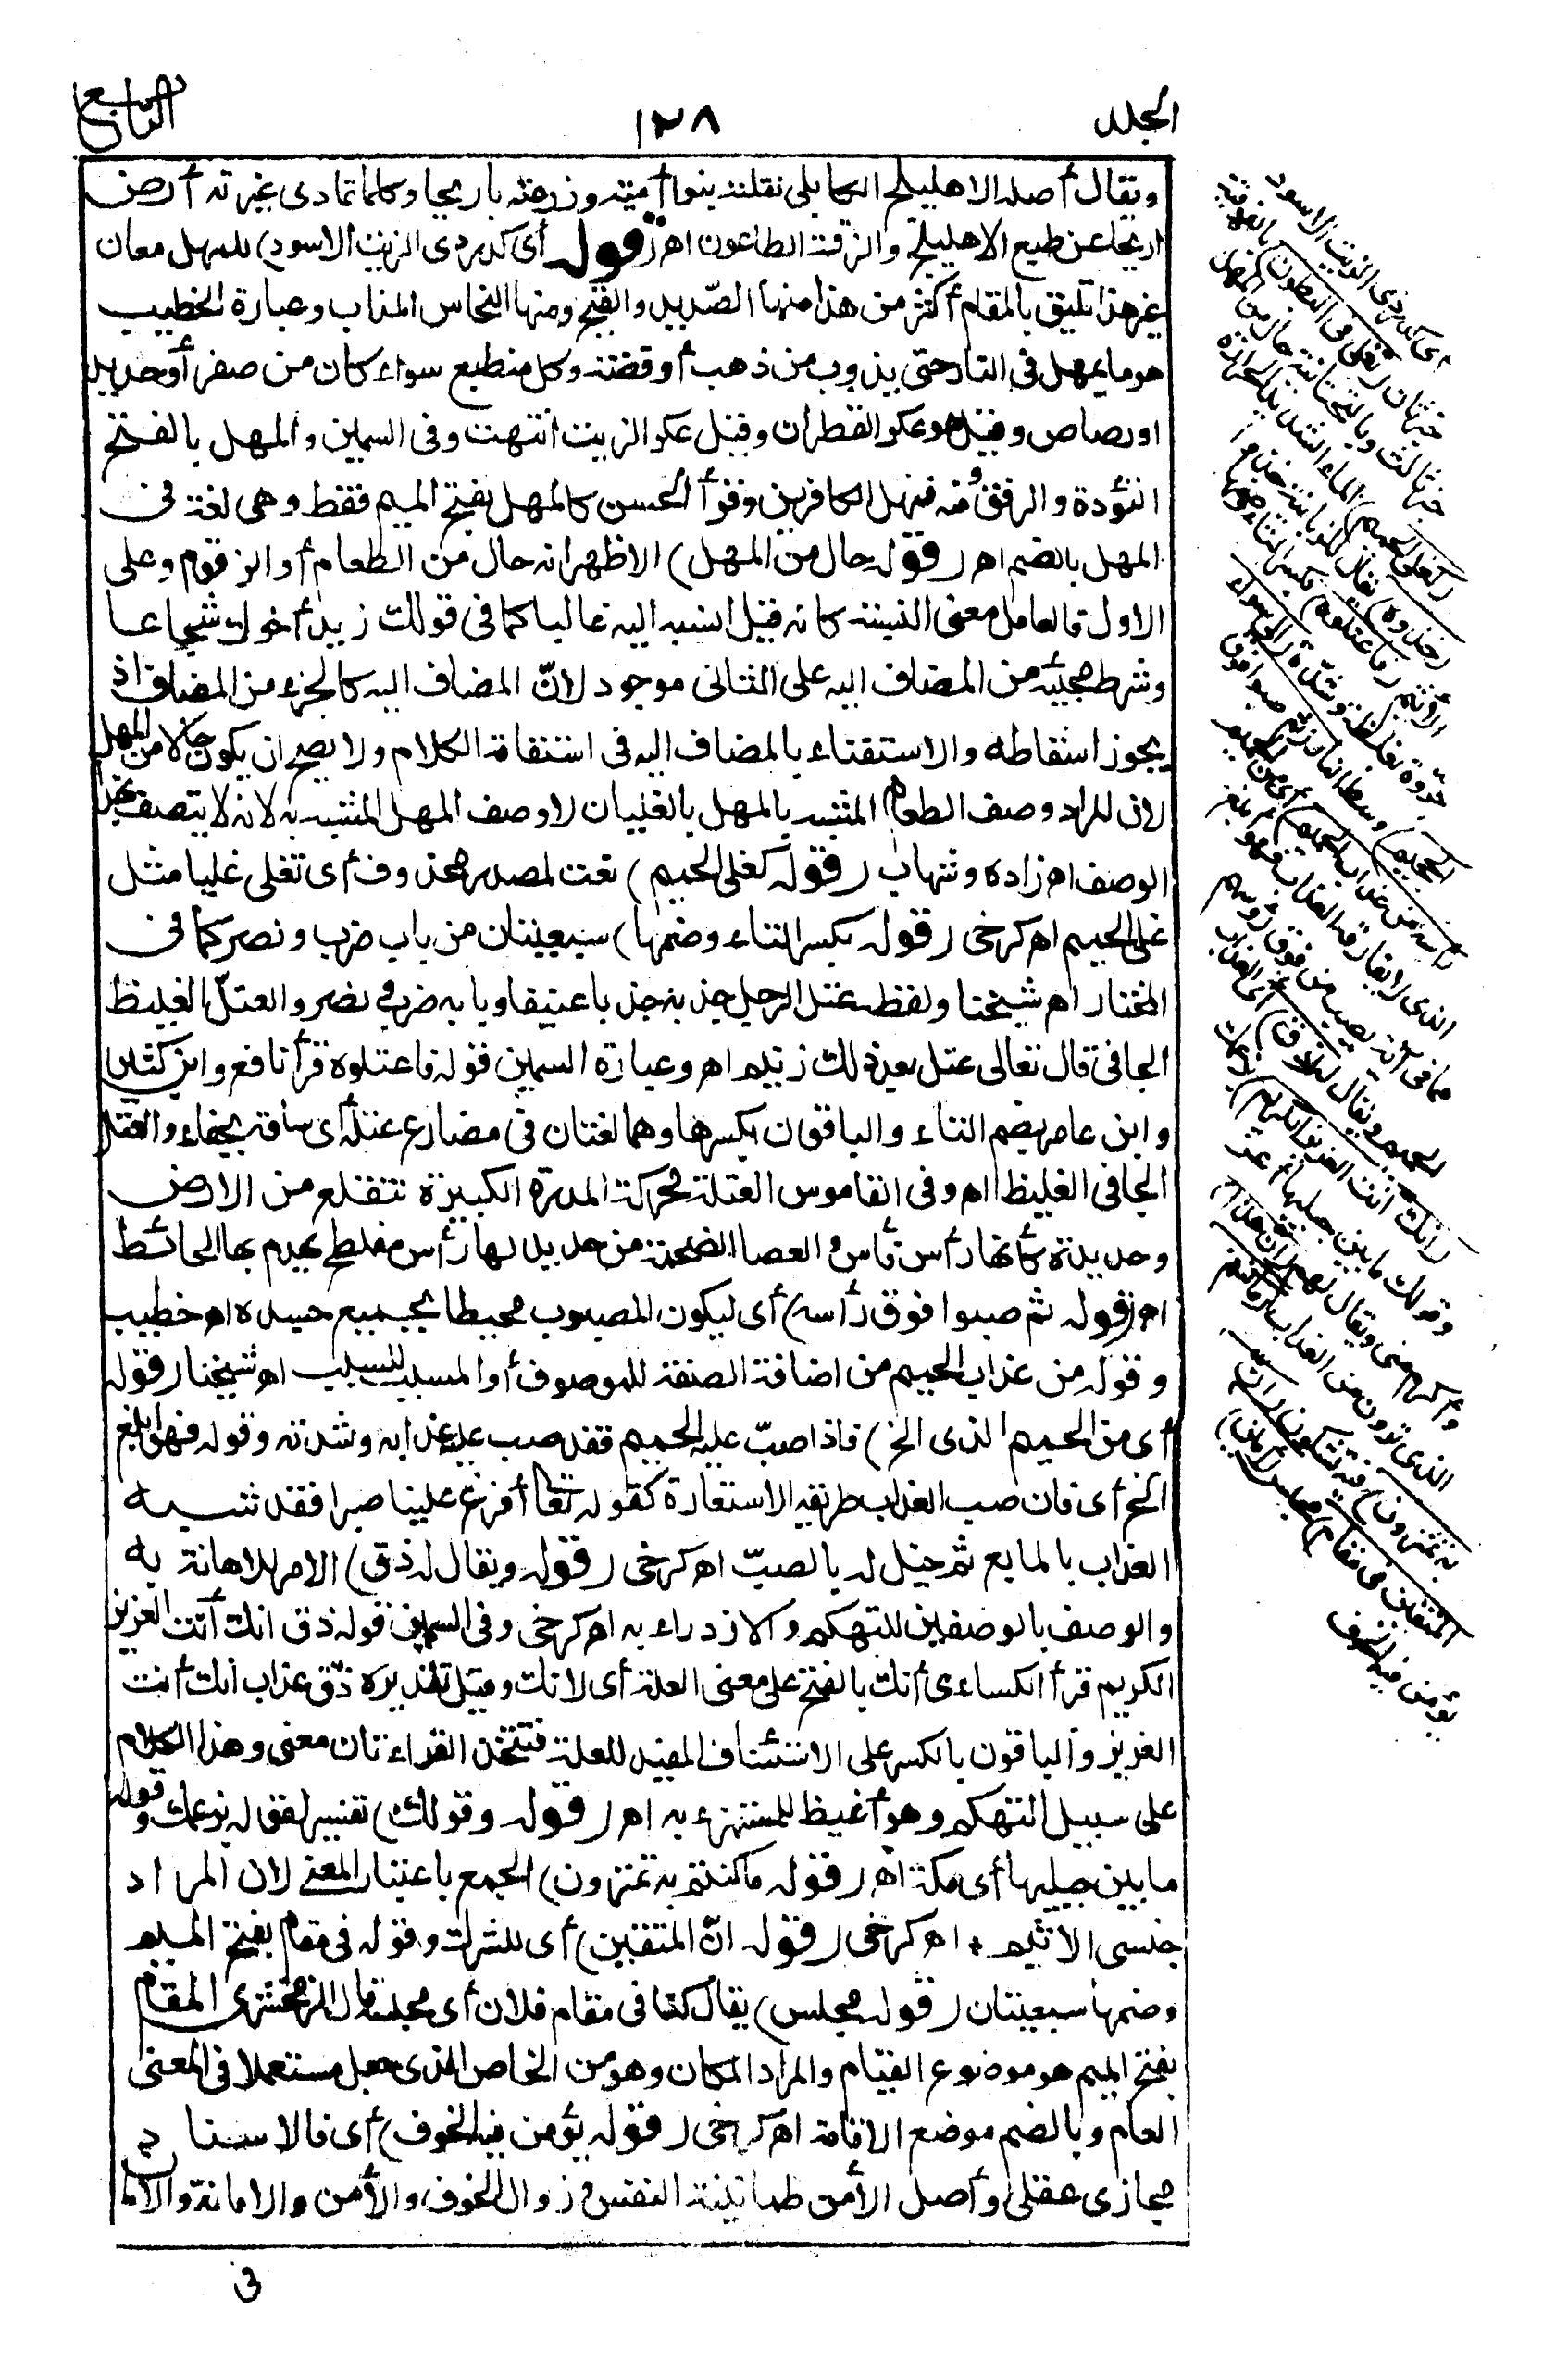 المجلد
١٢٨
السابع
ويقال أصله الاهليلج الكابلى نقلته بنوا أمية وزرعته باريحا وكلما تمادى غيرته أرض
اريحا عن طبع الاهليلج والزقنة الطاعون اھ (قوله أى كدردى الزيت الاسود) للمهل معان
غير هذا تليق بالمقام أكثر من هذا منها الصّديد والقيح ومنها النحاس المذاب وعبارة الخطيب
هو ما يمهل فى النار حتى يذوب من ذهب أو فضة وكل منطبع سواء كان من صفر أو حديد
او رصاص وقيل هو عكر القطران وقيل عكر الزيت انتهت وفى السمين والمهل بالفتح
التؤدة والرفق ومنه فمهل الكافرين وقرأ الحسن كالمهل بفتح الميم فقط وهى لغة فى
المهل بالضم اھ (قوله حال من المهل) الاظهر انه حال من الطعام أو الزقوم وعلى
الاول فالعامل معنى التشبيه كانه قيل اشبه اليه غاليا كما فى قولك زيد أخوك شجاعا
وشرط مجيئه من المضاف اليه على الثانى موجود لانّ المضاف اليه كالجزء من المضاف اذ
يجوز اسقاطه والاستغناء بالمضاف اليه فى استقامة الكلام ولا يصح ان يكون حالا من المهل
لان المراد وصف الطعام المشبه بالمهل بالغليان لا وصف المهل المشبه به لانه لا يتصف بهذا
الوصف اھ زاده وشهاب (قوله كغلى الحميم) نعت لمصدر محذوف أى تغلى غليا مثل
غلى الحميم اھ كرخى (قوله بكسر التاء وضمها) سبعيتان من باب ضرب ونصر كما فى
المختار اھ شيخنا ولفظه عتل الرجل جذبه جذبا عنيفا وبابه ضرب ونصر والعتلّ الغليظ
الجافى قال تعالى عتل بعد ذلك زنيم اھ وعبارة السمين قوله فاعتلوه قرأ نافع وابن كثير
وابن عامر بضم التاء والباقون بكسرها وهما لغتان فى مضارع عتله أى ساقه بجفاء والعتل
الجافى الغليظ اھ وفى القاموس العتلة محركة المدرة الكبيرة تتقلع من الارض
وحديدة كأنها رأس فأس والعصا الضخمة من حديد لها رأس مفلطح يهدم بها الحائط
اھ (قوله ثم صبوا فوق رأسه) أى ليكون المصبوب محيطا بجميع جسده اھ خطيب
وقوله من عذاب الحميم من اضافة الصفة للموصوف أو المسبب للسبب اھ شيخنا (قوله
أى من الحميم الذى الخ) فاذا صبّ عليه الحميم فقد صب عليه عذابه وشدته وقوله فهو أبلغ
الخ أى فان صب العذاب طريقه الاستعارة كقوله تعالى أفرغ علينا صبرا فقد شبه
العذاب بالمايع ثم خيل له بالصبّ اھ كرخى (قوله ويقال له ذق) الامر للاهانة به
والوصف بالوصفين للتهكم والازدراء به اھ كرخى وفى السمين قوله ذق انك أنت العزيز
الكريم قرأ الكساءى أنك بالفتح على معنى العلة أى لانك وقيل تقديره ذق عذاب انك أنت
العزيز والباقون بالكسر على الاستئناف المفيد للعلة فتتحد القراءتان معنى وهذا الكلام
على سبيل التهكم وهو أغيظ للمستهزء به اھ (قوله وقولك) تفسير لقوله بزعمك وقوله
ما بين جبليها أى مكة اھ (قوله ما كنتم به تمترون) الجمع باعتبار المعنى لان المراد
جنسى الاثيم اھ كرخى (قوله انّ المتقين) أى للشرك وقوله فى مقام بفتح الميم
وضمها سبعيتان (قوله مجلس) يقال كنا فى مقام فلان أى مجلسه قال الزمخشرى المقام
بفتح الميم هو موضوع القيام والمراد المكان وهو من الخاص الذى جعل مستعملا فى المعنى
العام وبالضم موضع الاقامة اھ كرخى (قوله يؤمن فيه الخوف) أى فالاسناد
مجازى عقلى وأصل الأمن طمأنينة النفس وزوال الخوف والأمن والامانة والأمان
فى
أى كدردى الزيت الاسود
خبر ثان (تغلى فى البطون) بالفوقية
خبر ثالث وبالتحتانية حال من المهل
(كغلى الحميم) الماء الشديد الحرارة
(خذوه) يقال للزبانية خذوا
الأثيم (فاعتلوه) بكسر التاء وضمها
جرّوه بغلظة وشدّة (الى سواء
الجحيم) وسط النار (ثم صبوا فوق
رأسه من عذاب الحميم) أى من الحميم
الذى لا يفارقه العذاب فهو أبلغ
مما فى آية يصب من فوق رؤسهم
الحميم ويقال له (ذق) أى العذاب
(انك أنت العزيز الكريم) بزعمك
وقولك ما بين جبليها أعز
وأكرم منى ويقال لهم (ان هذا)
الذى ترون من العذاب (ما كنتم
به تمترون) فيه تشكون (ان
المتقين فى مقام) مجلس (أمين)
يؤمن فيه الخوف